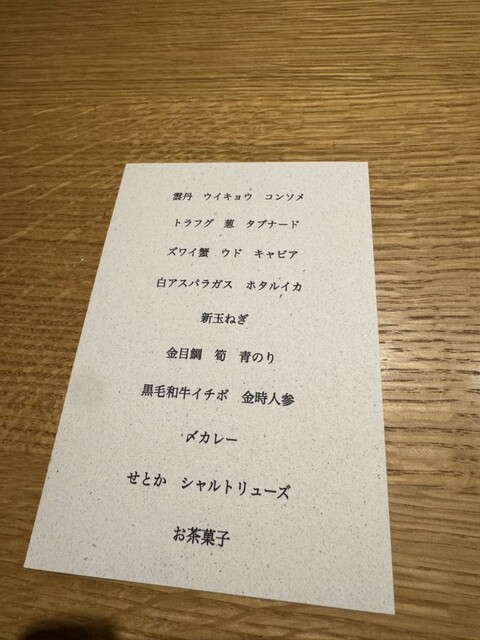 雲丹　ウイキョウ　コンソメ
トラフグ　葱　タプナード
ズワイ蟹　ウド　キャビア
白アスパラガス　ホタルイカ
新玉ねぎ
金目鯛　筍　青のり
黒毛和牛イチボ　金時人参
〆カレー
せとか　シャルトリューズ
お茶菓子